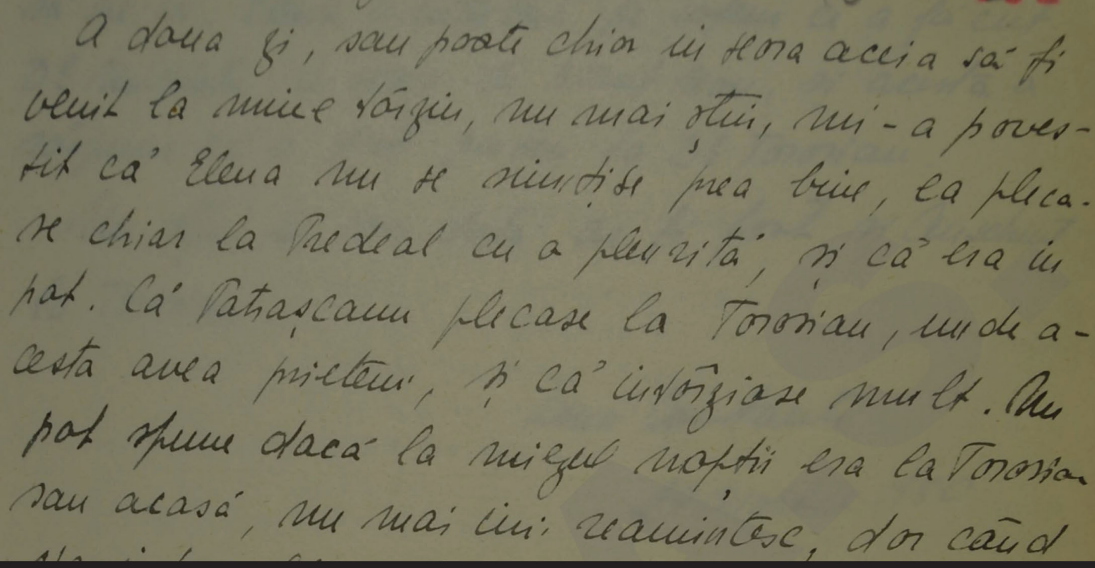 A doua zi, sau poate chiar in seara aceia să fi
venit la mine târziu, nu mai știu, mi-a poves-
tit că Elena nu se simțise prea bine, ea pleca-
se chiar la Predeal cu o pleurită, și că era in
pat. Că Pătrașcanu plecase la Torosian, unde a-
cesta avea prieteni, și că intârziase mult. Nu
pot spune dacă la miezul nopții era la Torosian
sau acasă, nu mai imi reamintesc, dar când